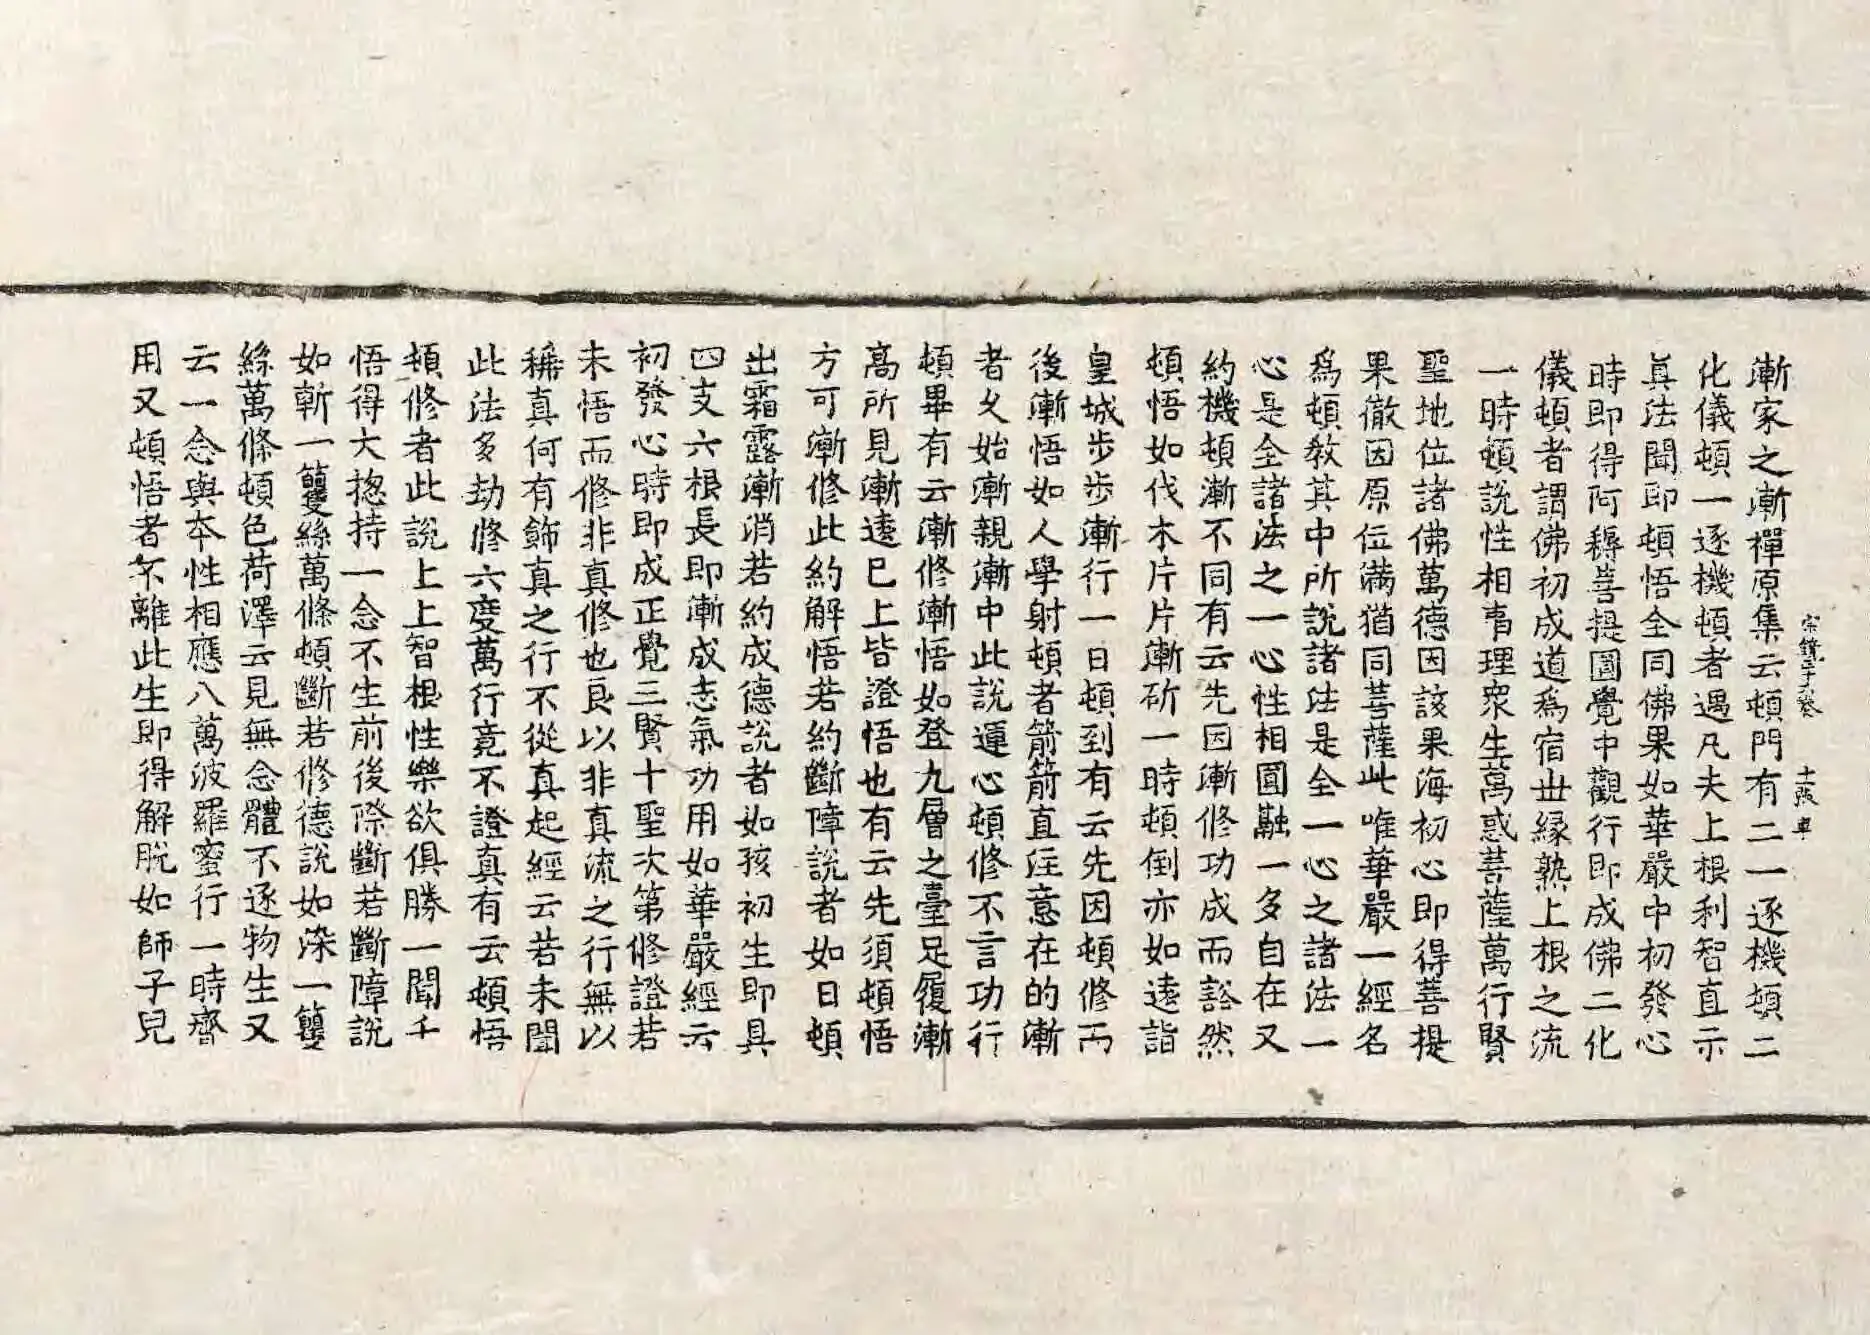 宗鏡三十六卷
漸家之漸禪原集云頓門有二一逐機頓二
化儀頓一逐機頓者遇凡夫上根利智直示
真法聞即頓悟全同佛果如華嚴中初發心
時即得阿耨菩提圓覺中觀行即成佛二化
儀頓者謂佛初成道爲宿世緣熟上根之流
一時頓說性相事理衆生萬惑菩薩萬行賢
聖地位諸佛萬德因該果海初心即得菩提
果徹因原位滿猶同菩薩此唯華嚴一經名
爲頓教其中所說諸法是全一心之諸法一
心是全諸法之一心性相圓融一多自在又
約機頓漸不同有云先因漸修功成而豁然
頓悟如伐木片片漸斫一時頓倒亦如遠詣
皇城步步漸行一日頓到有云先因頓修而
後漸悟如人學射頓者箭箭直注意在的漸
者久始漸親漸中此說運心頓修不言功行
頓畢有云漸修漸悟如登九層之臺足履漸
高所見漸遠已上皆證悟也有云先須頓悟
方可漸修此約解悟若約斷障說者如日頓
出霜露漸消若約成德說者如孩初生即具
四支六根長即漸成志氣功用如華嚴經云
初發心時即成正覺三賢十聖次第修證若
未悟而修非真修也良以非真流之行無以
稱真何有飾真之行不從真起經云若未聞
此法多劫修六度萬行竟不證真有云頓悟
頓修者此說上上智根性樂欲俱勝一聞千
悟得大揔持一念不生前後際斷若斷障說
如斬一䉶絲萬條頓斷若修德說如染一䉶
絲萬條頓色荷澤云見無念體不逐物生又
云一念與本性相應八萬波羅蜜行一時齊
用又頓悟者不離此生即得解脫如師子兒